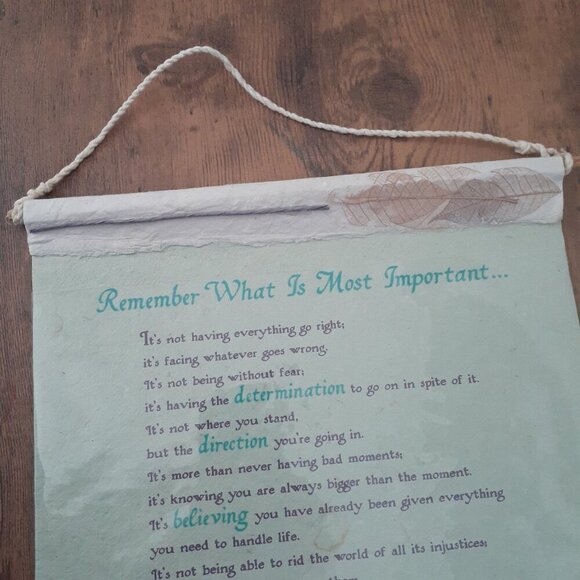 Remember What Is Most Important...
It's not having everything go right;
it's facing whatever goes wrong.
It's not being without fear;
it's having the determination to go on in spite of it.
It's not where you stand,
but the direction you're going in.
It's more than never having bad moments;
it's knowing you are always bigger than the moment.
It's believing you have already been given everything
you need to handle life.
It's not being able to rid the world of all its injustices;
them